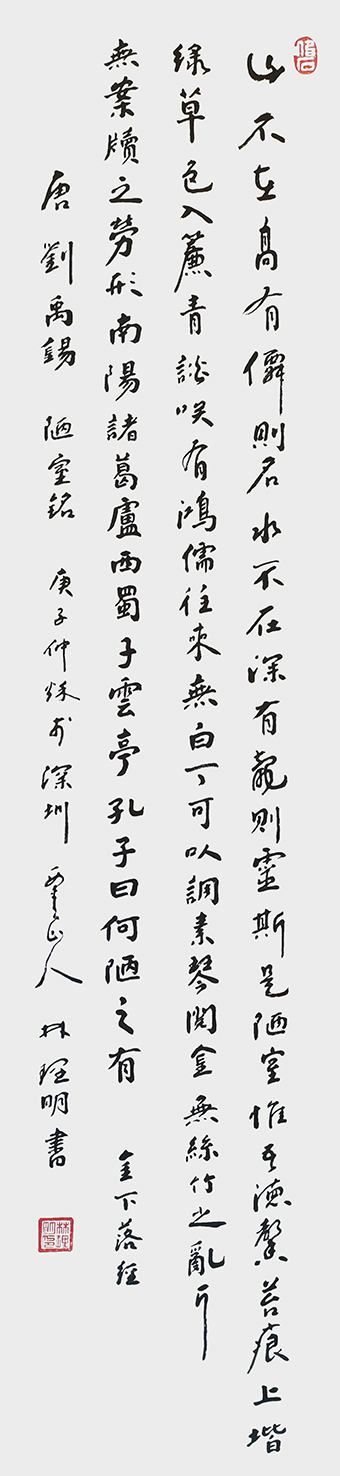 山不在高有僊則名水不在深有龍則靈斯是陋室惟吾德馨苔痕上堦
緑草色入簾青談咲有鴻儒往來無白丁可以調素琴閱金無絲竹之亂耳
無案牘之勞形南陽諸葛廬西蜀子雲亭孔子曰何陋之有 金下落經
唐 劉禹錫 陋室銘 庚子仲秌於深圳 山人 林理明書
林理明印